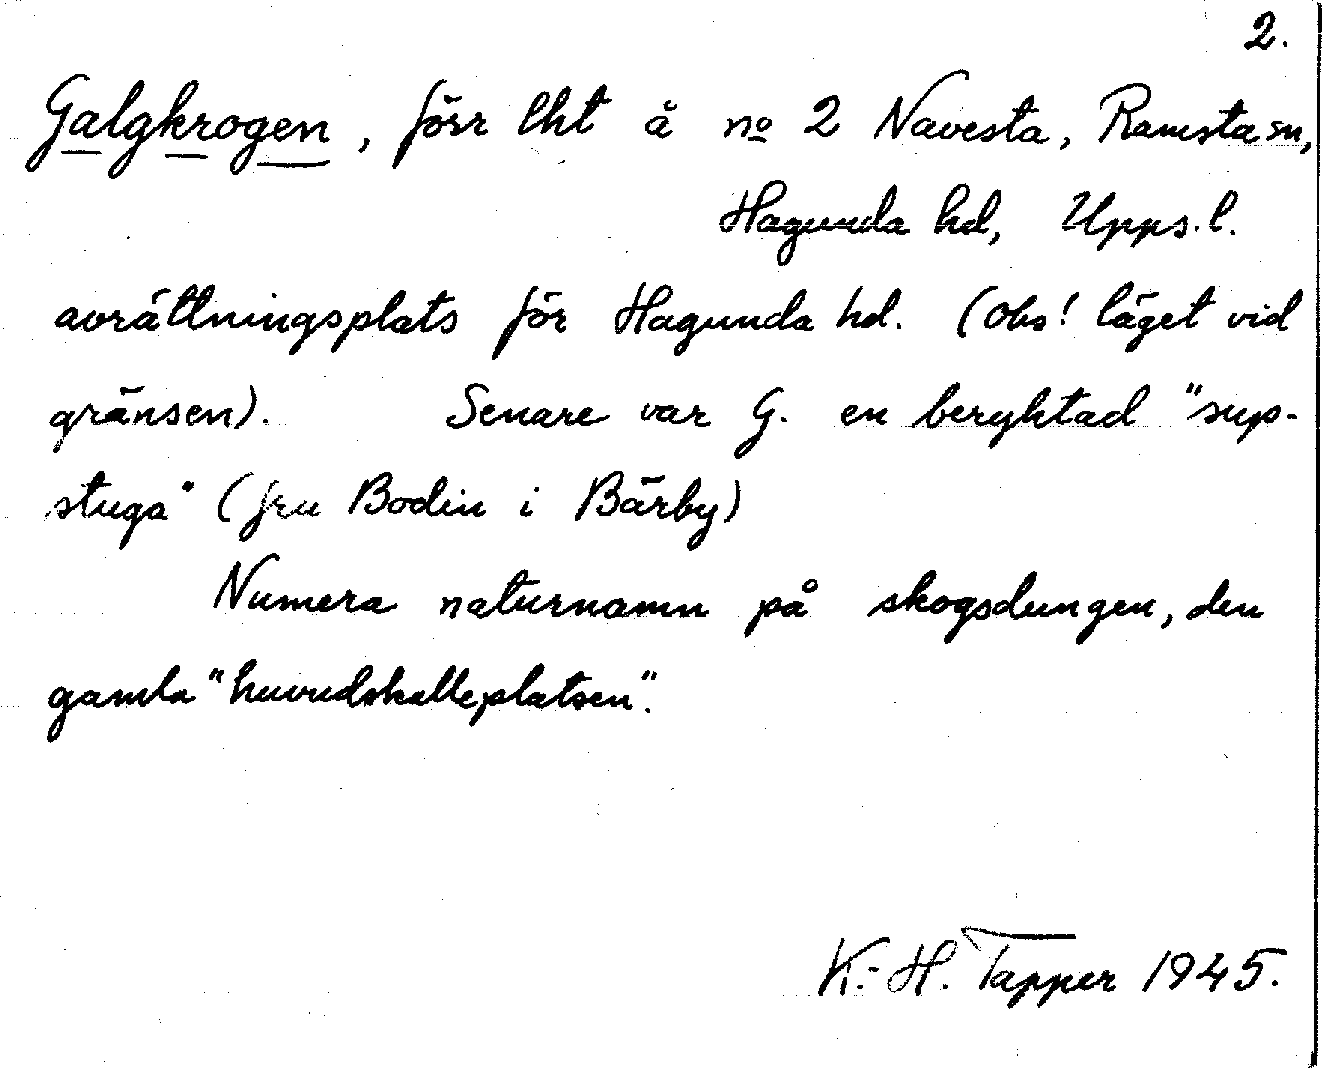 2.
Galgkrogen, förr lht å nº 2 Navesta, Ramsta sn,
Hagunda hd, Upps. l.
avrättningsplats för Hagunda hd. (Obs! läget vid
gränsen). Senare var G. en beryktad "sup-
stuga" (fru Bodin i Bärby)
Numera naturnamn på skogsdungen, den
gamla "huvudskalleplatsen".
K.-H. Tapper 1945.